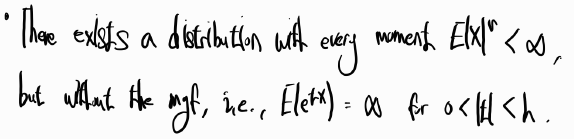 · There exists a distribution with every moment E|X|^r < ∞,
but without the mgf, i.e., E(e^{tX}) = ∞ for 0<|t|<h.